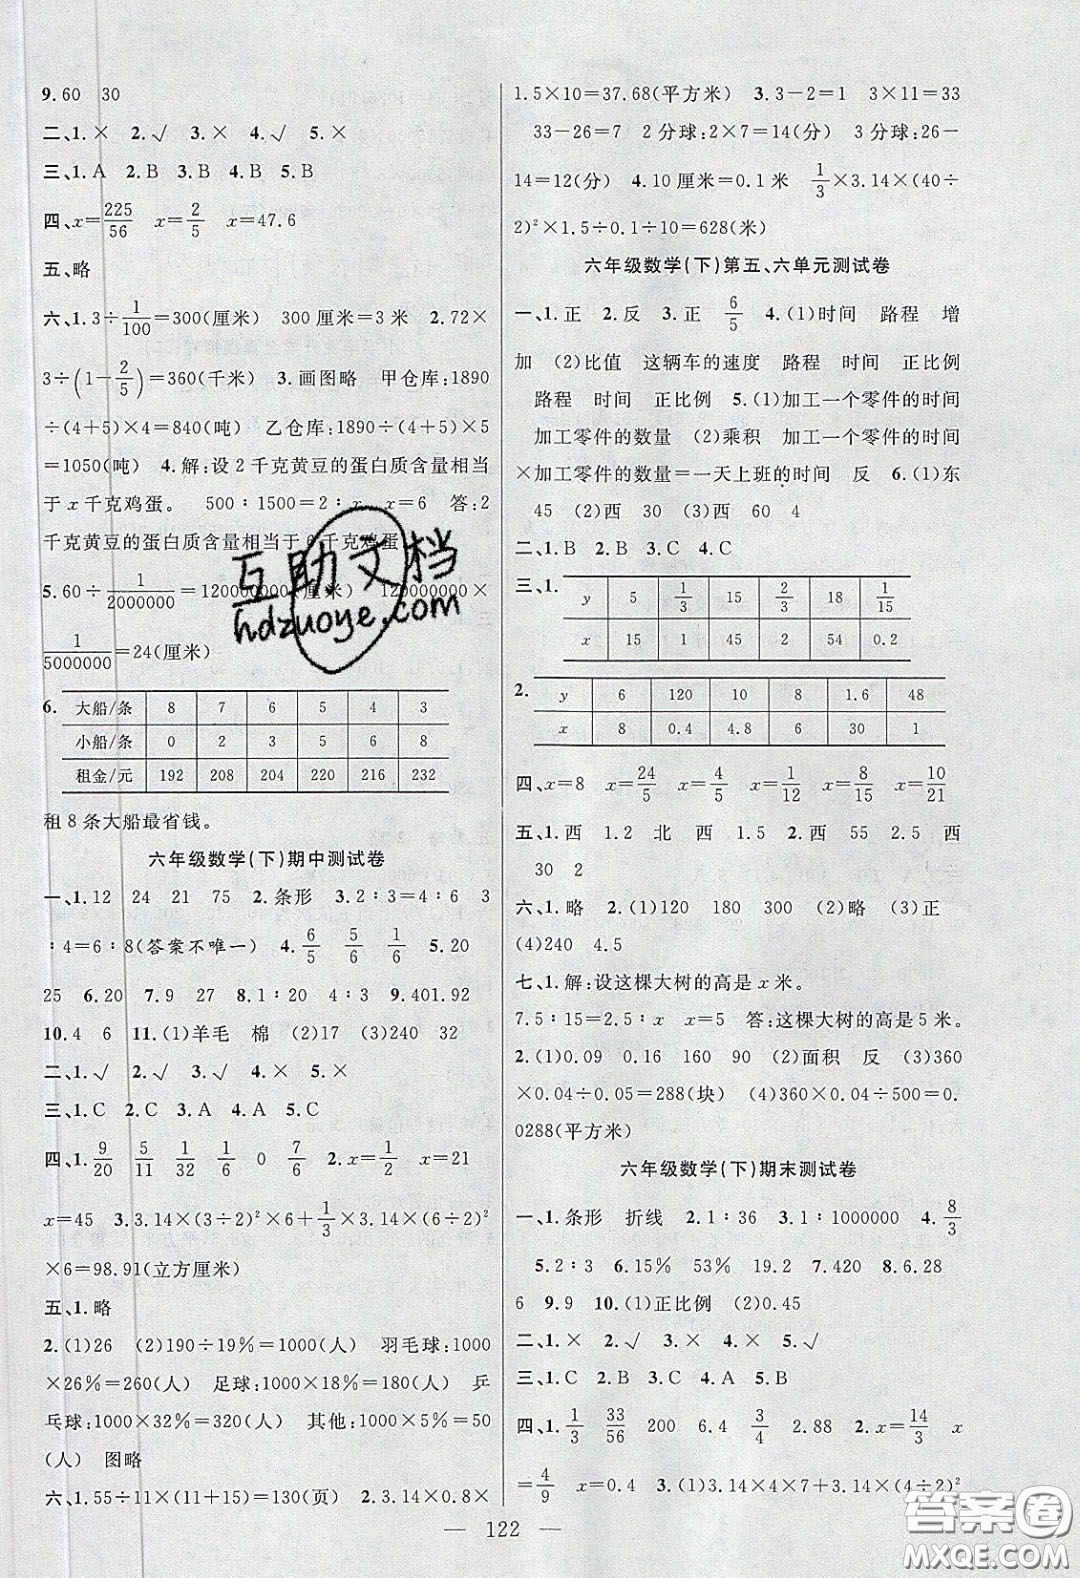 9.60  30
二、1.×  2.√  3.×  4.√  5.×
三、1.A  2.B  3.B  4.B  5.B
四、x=225/56  x=2/5  x=47.6
五、略
六、1.3÷1/100=300(厘米)  300厘米=3米  2.72×
3÷(1-2/5)=360(千米)  3.画图略  甲仓库:1890
÷(4+5)×4=840(吨)  乙仓库:1890÷(4+5)×5
=1050(吨)  4.解:设2千克黄豆的蛋白质含量相当
于x千克鸡蛋。  500∶1500=2∶x  x=6  答:2
千克黄豆的蛋白质含量相当于6千克鸡蛋
5.60÷1/2000000=120000000(厘米)  120000000×
1/5000000=24(厘米)
6. 大船/条  8  7  6  5  4  3
小船/条  0  2  3  5  6  8
租金/元  192  208  204  220  216  232
租8条大船最省钱。
六年级数学(下)期中测试卷
一、1.12  24  21  75  2.条形  3.2∶3=4∶6  3
∶4=6∶8(答案不唯一)  4.6/5  5/6  1/6  5.20
25  6.20  7.9  27  8.1∶20  4∶3  9.401.92
10.4  6  11.(1)羊毛  棉  (2)17  (3)240  32
二、1.√  2.×  3.√  4.×  5.×
三、1.C  2.C  3.A  4.A  5.C
四、1.9/20  5/11  1/32  1/6  0  7/6  2.x=1/2  x=21
x=45  3.3.14×(3÷2)²×6+1/3×3.14×(6÷2)²
×6=98.91(立方厘米)
五、1.略
2.(1)26  (2)190÷19%=1000(人)  羽毛球:1000
×26%=260(人)  足球:1000×18%=180(人)  乒
乓球:1000×32%=320(人)  其他:1000×5%=50
(人)  图略
六、1.55÷11×(11+15)=130(页)  2.3.14×0.8×
1.5×10=37.68(平方米)  3.3-2=1  3×11=33
33-26=7  2分球:2×7=14(分)  3分球:26-
14=12(分)  4.10厘米=0.1米  1/3×3.14×(40÷
2)²×1.5÷0.1÷10=628(米)
六年级数学(下)第五、六单元测试卷
一、1.正  2.反  3.正  6/5  4.(1)时间  路程  增
加  (2)比值  这辆车的速度  路程  时间  正比例
路程  时间  正比例  5.(1)加工一个零件的时间
加工零件的数量  (2)乘积  加工一个零件的时间
×加工零件的数量=一天上班的时间  反  6.(1)东
45  (2)西  30  (3)西  60  4
二、1.B  2.B  3.C  4.C
三、1. y  5  1/3  15  2/3  18  1/15
x  15  1  45  2  54  0.2
2. y  6  120  10  8  1.6  48
x  8  0.4  4.8  6  30  1
四、x=8  x=24/5  x=4/5  x=1/12  x=8/15  x=10/21
五、1.西  1.2  北  西  1.5  2.西  2.5  西
30  2
六、1.略  2.(1)120  180  300  (2)略  (3)正
(4)240  4.5
七、1.解:设这棵大树的高是x米。
7.5∶15=2.5∶x  x=5  答:这棵大树的高是5米。
2.(1)0.09  0.16  160  90  (2)面积  反  (3)360
×0.04÷0.05=288(块)  (4)360×0.04÷500=0.
0288(平方米)
六年级数学(下)期末测试卷
一、1.条形  折线  2.1∶36  3.1∶1000000  4.8/3
5.2∶3  6.15%  53%  19.2  7.420  8.6.28
6  9.9  10.(1)正比例  (2)0.45
二、1.×  2.√  3.×  4.×  5.√
三、1.C  2.B  3.A  4.C  5.C
四、1.1/3  33/56  200  6.4  3/4  2.88  2.x=14/3  x
=4/9  x=0.4  3.(1)3.14×4×7+3.14×(4÷2)²
— 122 —
互助文档
hdzuoye.com
答案圈
MXQE.COM